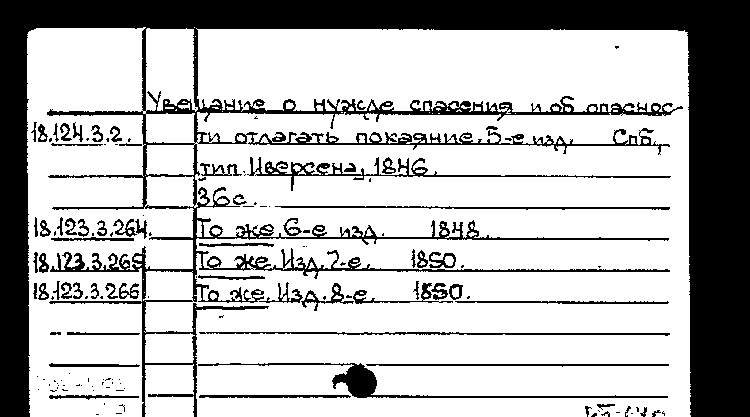 Увещание о нужде спасения и об опаснос-
18.124.3.2. ти отлагать покаяние. 5-е изд. Спб.,
тип. Иверсена, 1846.
36с.
18.123.3.264. То же. 6-е изд. 1848.
18.123.3.265. То же. Изд. 7-е. 1850.
18.123.3.266 То же. Изд. 8-е. 1850.